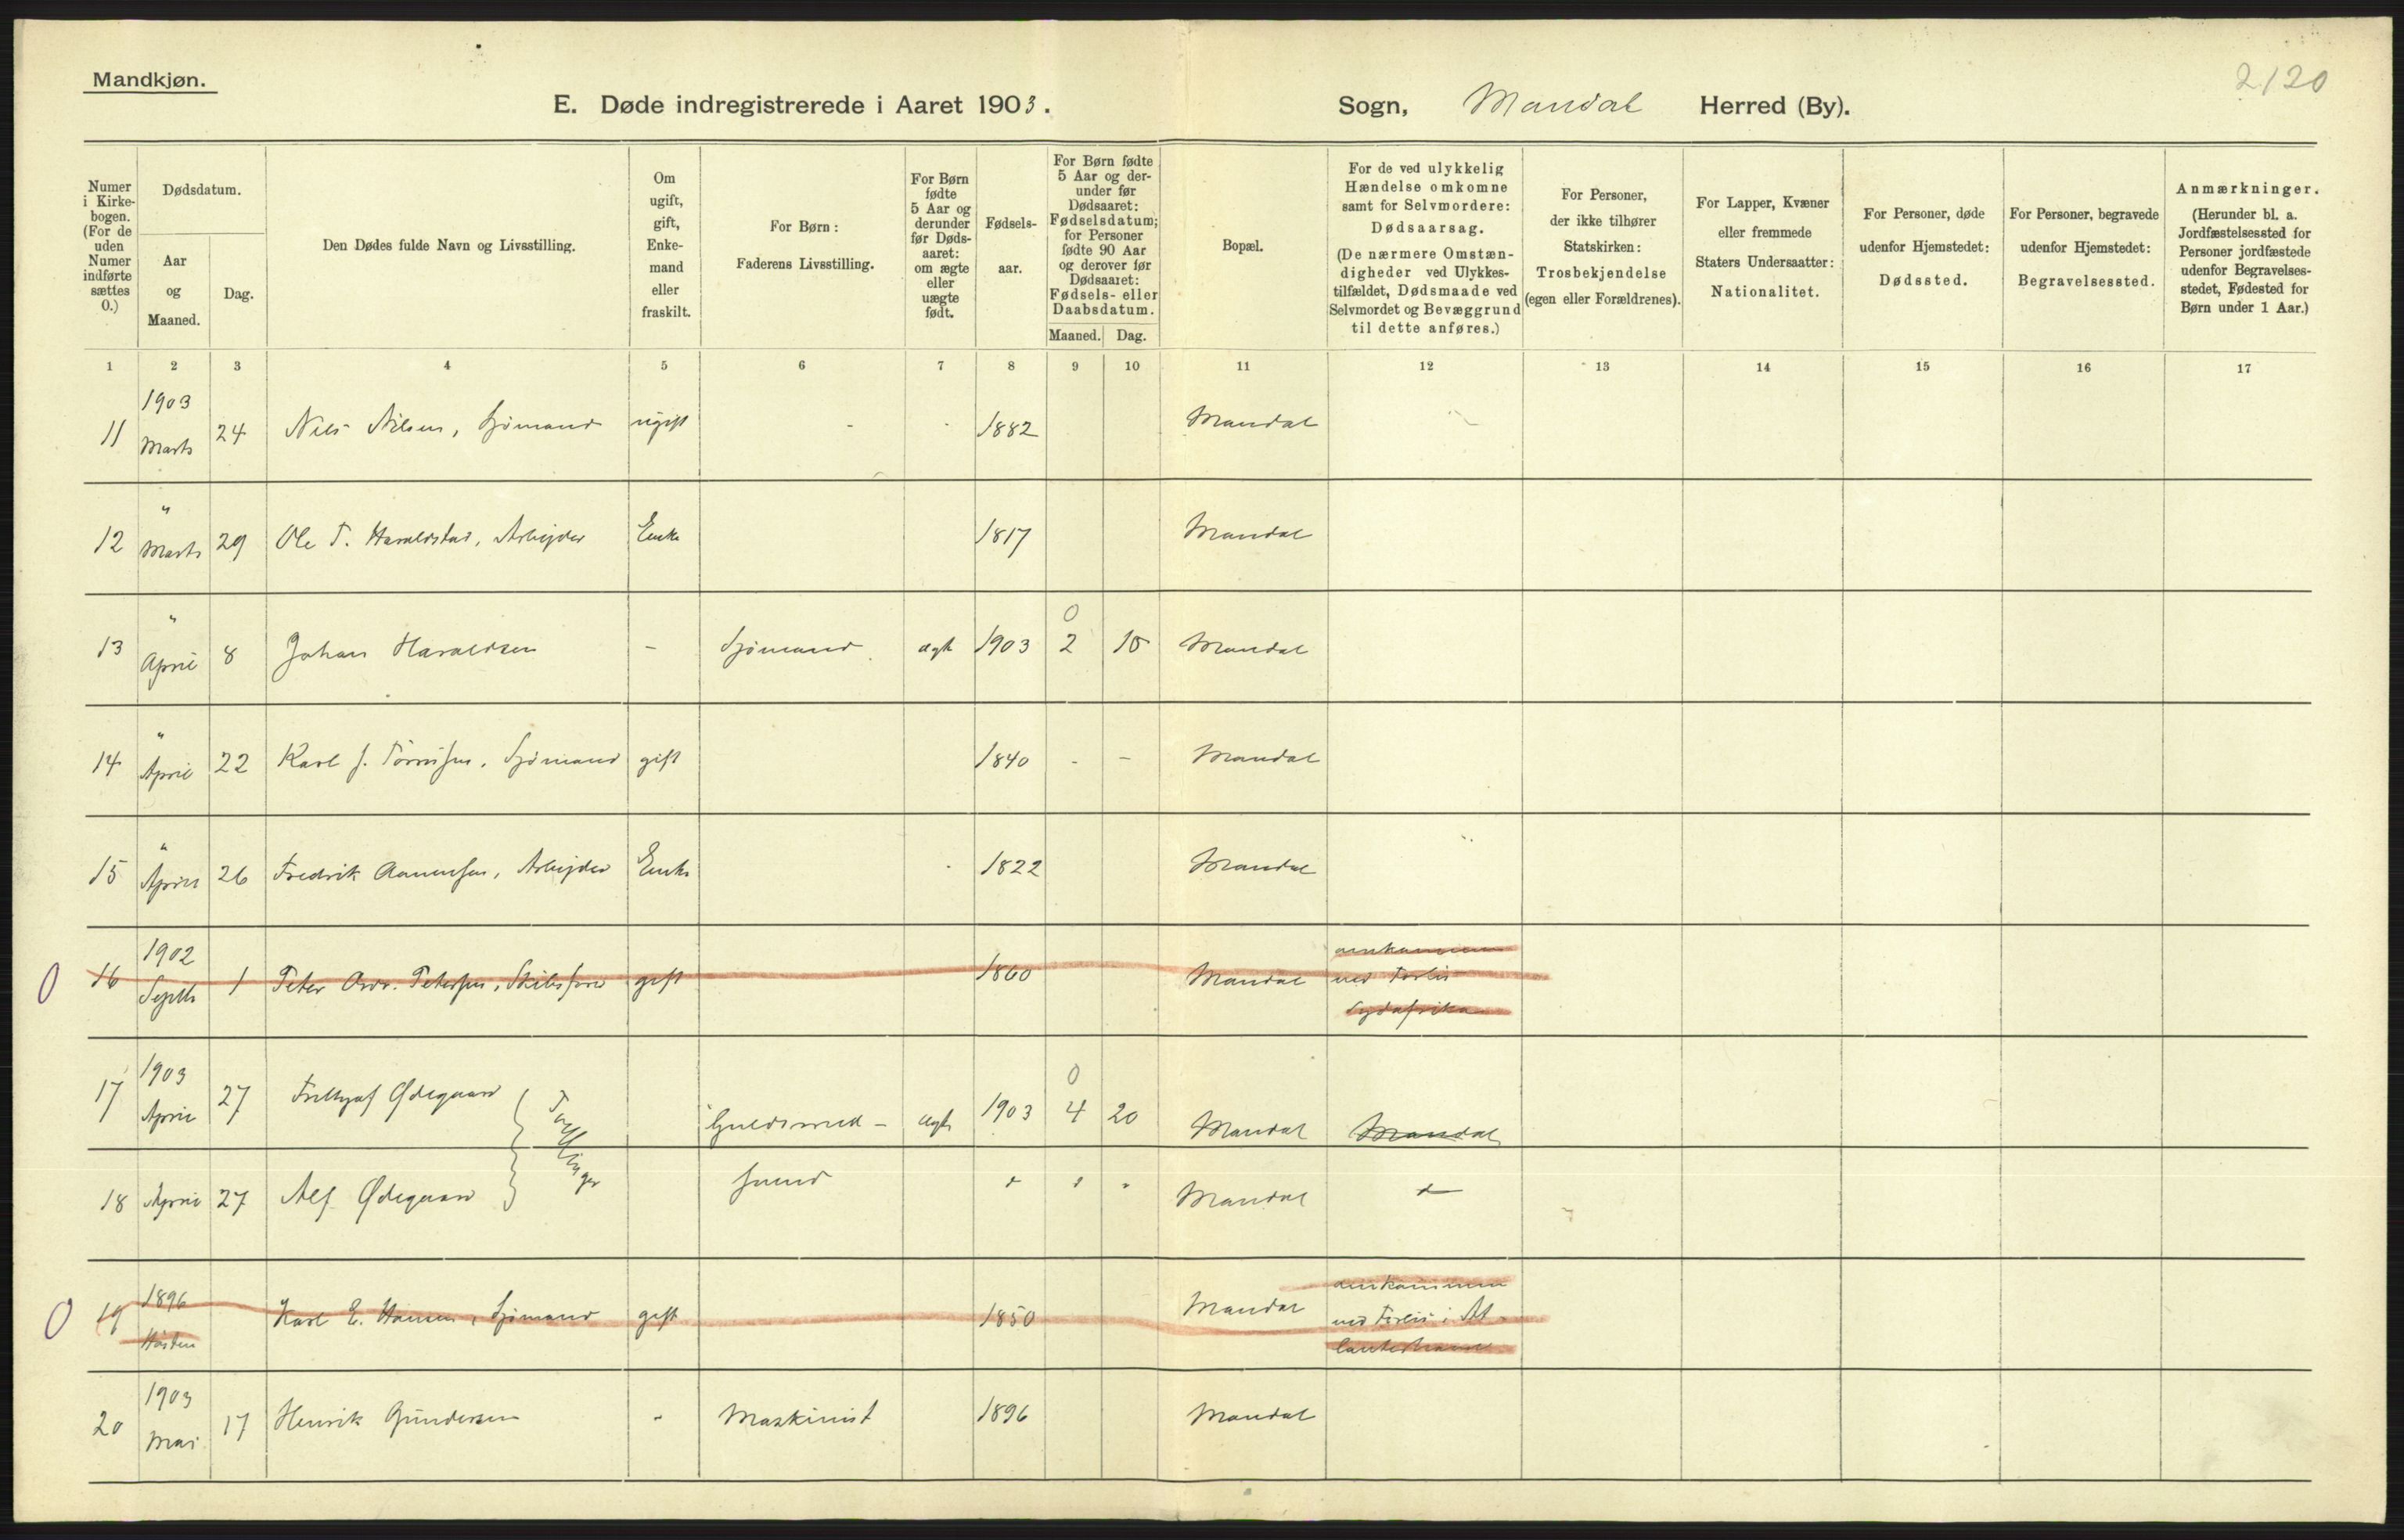 Mandkjøn.
2120
E. Døde indregistrerede i Aaret 1903. Sogn, Mandal Herred (By).
Numer i Kirkebogen. (For de uden Numer indførte sættes 0.)
Dødsdatum.
Aar og Maaned.
Dag.
Den Dødes fulde Navn og Livsstilling.
Om ugift, gift, Enkemand eller fraskilt.
For Børn: Faderens Livsstilling.
For Børn fødte 5 Aar og derunder før Dødsaaret: om ægte eller uægte født.
Fødselsaar.
For Børn fødte 5 Aar og derunder før Dødsaaret: Fødselsdatum; for Personer fødte 90 Aar og derover før Dødsaaret: Fødsels- eller Daabsdatum.
Maaned. Dag.
Bopæl.
For de ved ulykkelig Hændelse omkomne samt for Selvmordere: Dødsaarsag. (De nærmere Omstændigheder ved Ulykkestilfældet, Dødsmaade ved Selvmordet og Bevæggrund til dette anføres.)
For Personer, der ikke tilhører Statskirken: Trosbekjendelse (egen eller Forældrenes).
For Lapper, Kvæner eller fremmede Staters Undersaatter: Nationalitet.
For Personer, døde udenfor Hjemstedet: Dødssted.
For Personer, begravede udenfor Hjemstedet: Begravelsessted.
Anmærkninger. (Herunder bl. a. Jordfæstelsessted for Personer jordfæstede udenfor Begravelsesstedet, Fødested for Børn under 1 Aar.)
1 2 3 4 5 6 7 8 9 10 11 12 13 14 15 16 17
11 1903 Marts 24 Nils Nilsen, Sjømand ugift - - 1882 Mandal
12 " Marts 29 Ole T. Haraldstad, Arbejder Enke 1817 Mandal
13 " April 8 Johan Haraldsen - Sjømand ægte 1903 0 2 15 Mandal
14 " April 22 Karl J. Tørrisen, Sjømand gift 1840 - - Mandal
15 " April 26 Fredrik Aanensen, Arbejder Enke 1822 Mandal
0 16 1902 Septb 1 Peter Petersen, Skibsfører gift 1860 Mandal omkommen ved Forlis Sydafrika
17 1903 April 27 Frithjof Ødegaard Tvillinger Guldsmed - ægte 1903 0 4 20 Mandal Mandal
18 April 27 Alf Ødegaard Svend " " " Mandal
0 19 1896 Høsten Karl E. Hansen, Sjømand gift 1850 Mandal omkommen ved Forlis i Atlanterhavet
20 1903 Mai 17 Henrik Gundersen - Maskinist 1896 Mandal